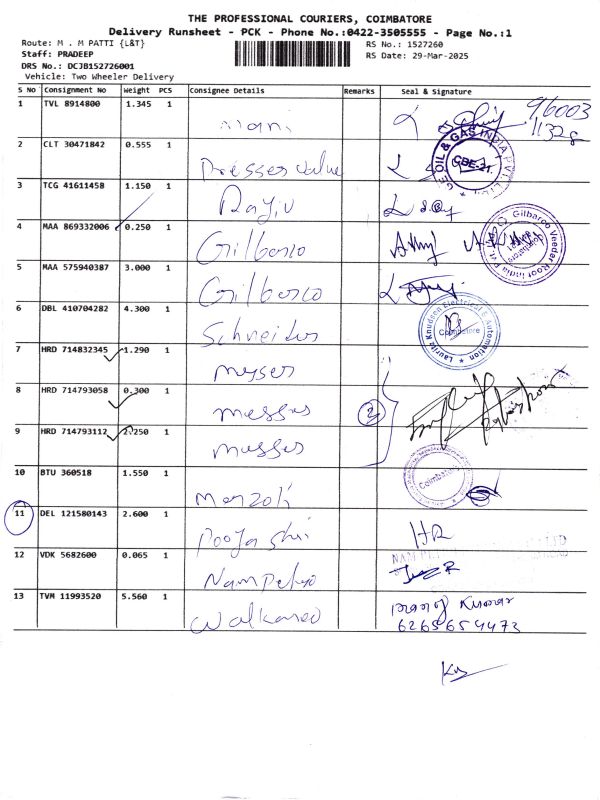 THE PROFESSIONAL COURIERS, COIMBATORE
Delivery Runsheet - PCK - Phone No.:0422-3505555 - Page No.:1
Route: M . M PATTI {L&T}
RS No.: 1527260
Staff: PRADEEP
RS Date: 29-Mar-2025
DRS No.: DCJB152726001
Vehicle: Two Wheeler Delivery
S No Consignment No Weight PCS Consignee Details Remarks Seal & Signature
1 TVL 8914800 1.345 1 mani 96003
1132g
2 CLT 30471842 0.555 1 Presses value
GE OIL & GAS INDIA PVT. LTD. CBE-21.
3 TCG 41611458 1.150 1 Rajiv
4 MAA 869332006 0.250 1 Gilbarco
Gilbarco Veeder Root India Pvt. Coimbatore
5 MAA 575940387 3.000 1 Gilbarco
6 DBL 410704282 4.300 1 Schneider
Lauritz Knudsen Electrical & Automation Coimbatore
7 HRD 714832345 1.290 1 messes
8 HRD 714793058 0.300 1 messes 2
9 HRD 714793112 2.250 1 messes
10 BTU 360518 1.550 1
Coimbatore
11 DEL 121580143 2.600 1 Pooja Shri HR
12 VDK 5682600 0.065 1
13 TVM 11993520 5.560 1 Kumar
6265654473